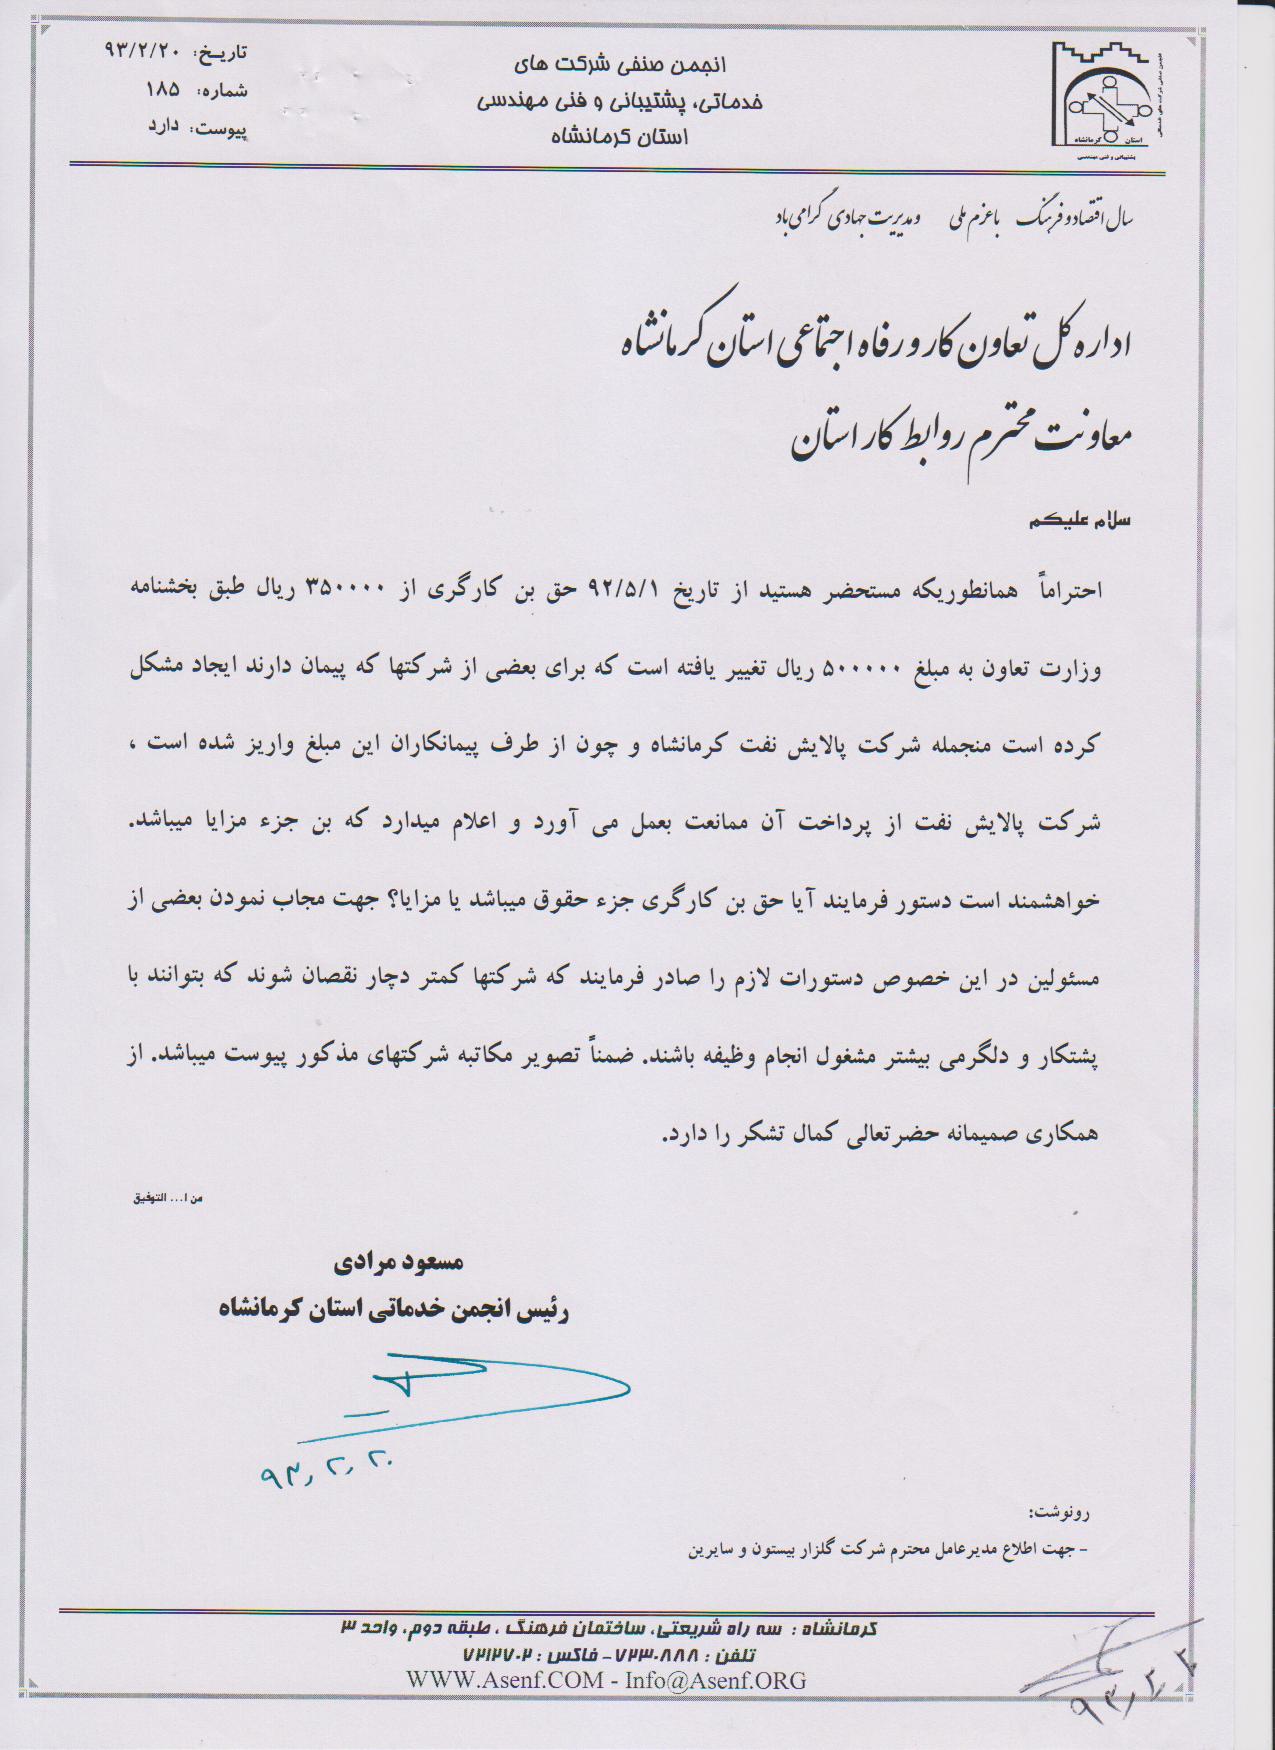 انجمن صنفی شرکت های
خدماتی، پشتیبانی و فنی مهندسی
استان کرمانشاه
تاریخ: ۹۳/۲/۲۰
شماره: ۱۸۵
پیوست: دارد
استان کرمانشاه
پشتیبانی و فنی مهندسی
سال اقتصاد و فرهنگ با عزم ملی و مدیریت جهادی گرامی باد
اداره کل تعاون کار و رفاه اجتماعی استان کرمانشاه
معاونت محترم روابط کار استان
سلام علیکم
احتراماً همانطوریکه مستحضر هستید از تاریخ ۹۲/۵/۱ حق بن کارگری از ۳۵۰۰۰۰ ریال طبق بخشنامه
وزارت تعاون به مبلغ ۵۰۰۰۰۰ ریال تغییر یافته است که برای بعضی از شرکتها که پیمان دارند ایجاد مشکل
کرده است منجمله شرکت پالایش نفت کرمانشاه و چون از طرف پیمانکاران این مبلغ واریز شده است ،
شرکت پالایش نفت از پرداخت آن ممانعت بعمل می آورد و اعلام میدارد که بن جزء مزایا میباشد.
خواهشمند است دستور فرمایند آیا حق بن کارگری جزء حقوق میباشد یا مزایا؟ جهت مجاب نمودن بعضی از
مسئولین در این خصوص دستورات لازم را صادر فرمایند که شرکتها کمتر دچار نقصان شوند که بتوانند با
پشتکار و دلگرمی بیشتر مشغول انجام وظیفه باشند. ضمناً تصویر مکاتبه شرکتهای مذکور پیوست میباشد. از
همکاری صمیمانه حضرتعالی کمال تشکر را دارد.
من ا... التوفیق
مسعود مرادی
رئیس انجمن خدماتی استان کرمانشاه
۹۳,۲,۲۰
رونوشت:
- جهت اطلاع مدیرعامل محترم شرکت گلزار بیستون و سایرین
کرمانشاه : سه راه شریعتی، ساختمان فرهنگ ، طبقه دوم، واحد ۳
تلفن : ۷۲۳۰۸۸۸ - فاکس : ۷۲۱۲۷۰۲
WWW.Asenf.COM - Info@Asenf.ORG